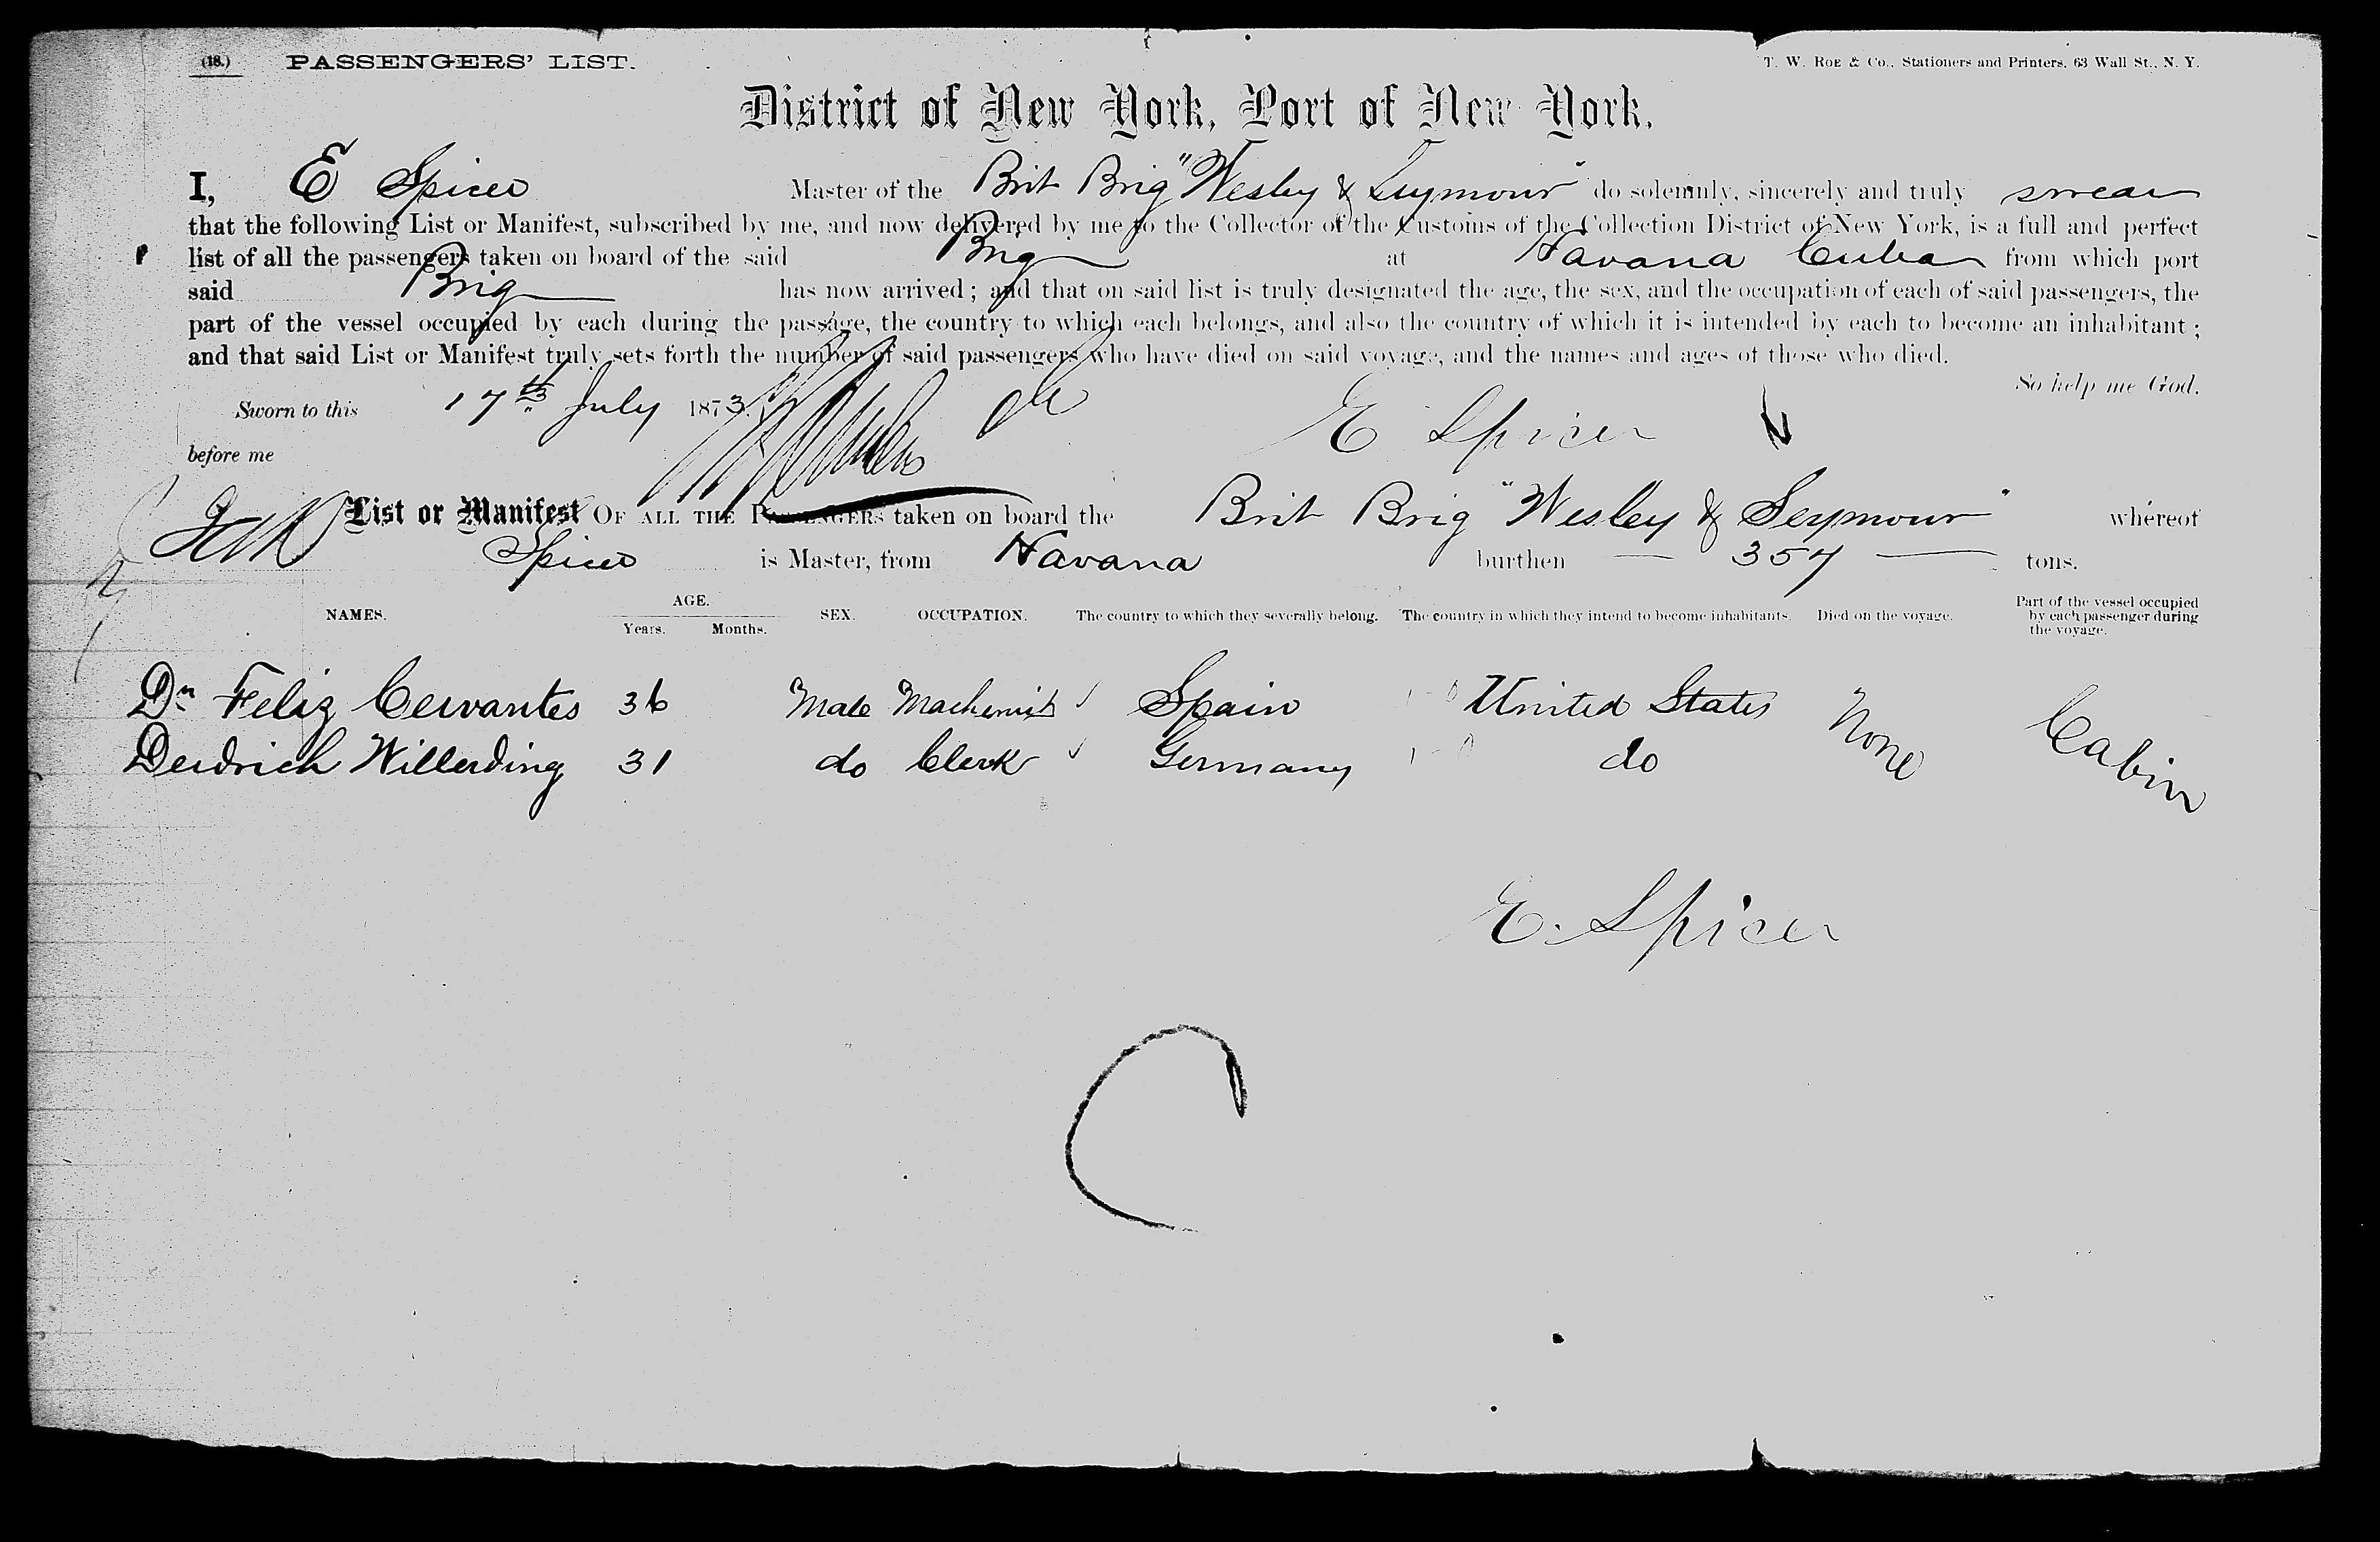 (18.) PASSENGERS' LIST. T. W. ROE & Co., Stationers and Printers, 63 Wall St., N. Y.
District of New York, Port of New York.
I, E Spicer Master of the Brit Brig "Wesley & Seymour" do solemnly, sincerely and truly swear
that the following List or Manifest, subscribed by me, and now delivered by me to the Collector of the Customs of the Collection District of New York, is a full and perfect
list of all the passengers taken on board of the said Brig at Havana Cuba from which port
said Brig has now arrived; and that on said list is truly designated the age, the sex, and the occupation of each of said passengers, the
part of the vessel occupied by each during the passage, the country to which each belongs, and also the country of which it is intended by each to become an inhabitant;
and that said List or Manifest truly sets forth the number of said passengers who have died on said voyage, and the names and ages of those who died.
So help me God.
Sworn to this 17th July 1873.
E Spicer
before me
List or Manifest OF ALL THE PASSENGERS taken on board the Brit Brig "Wesley & Seymour" whereof
Spicer is Master, from Havana burthen 357 tons.
NAMES. AGE. Years. Months. SEX. OCCUPATION. The country to which they severally belong. The country in which they intend to become inhabitants. Died on the voyage. Part of the vessel occupied by each passenger during the voyage.
Dn Feliz Cervantes 36 Male Machinist Spain United States None Cabin
Deidrich Willerding 31 do Clerk Germany do
E. Spicer
C